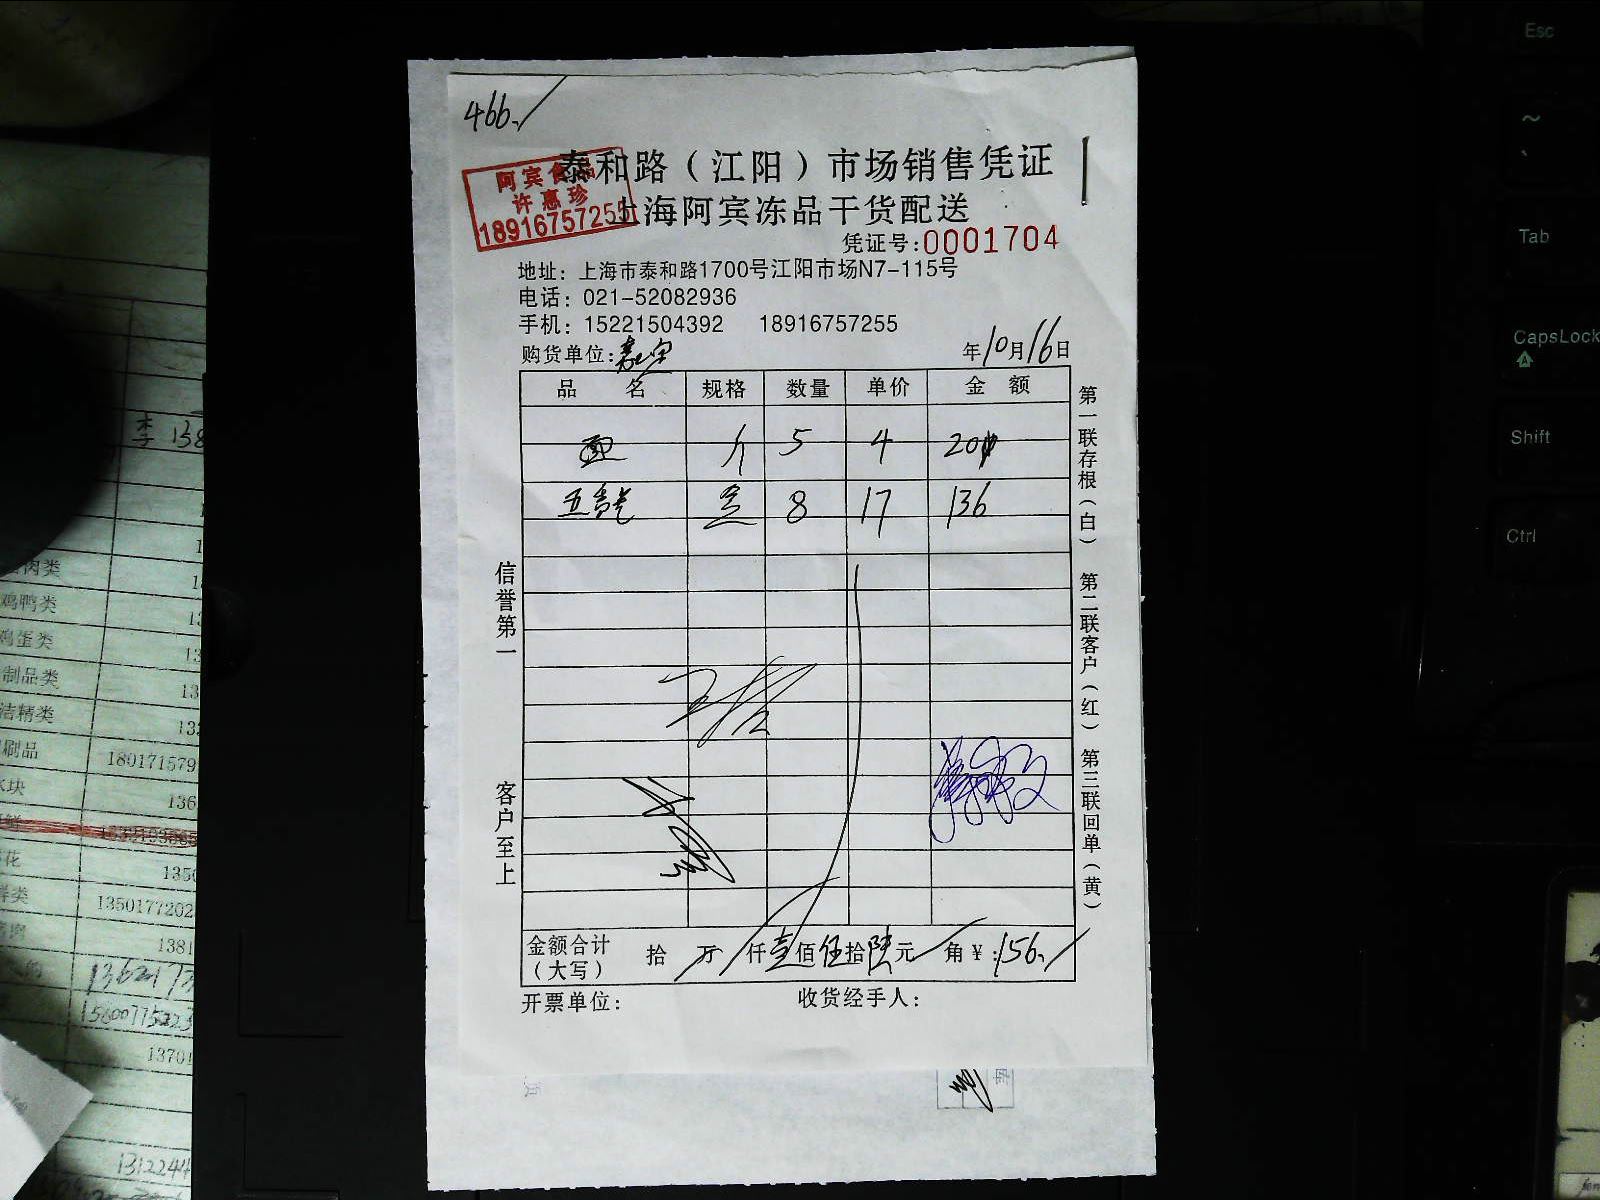 466.
泰和路（江阳）市场销售凭证
阿宾食品
许惠珍
18916757255
上海阿宾冻品干货配送
凭证号:0001704
地址：上海市泰和路1700号江阳市场N7-115号
电话：021-52082936
手机：15221504392 18916757255
购货单位:
年10月16日
品 名 规格 数量 单价 金 额
面 5 4 20
8 17 136
信誉第一
客户至上
第一联存根（白） 第二联客户（红） 第三联回单（黄）
金额合计（大写） 拾 万 仟壹佰伍拾陆元 角 ¥:156.
开票单位: 收货经手人:
李 138
肉类
鸡鸭类
鸡蛋类
制品类 13
洁精类 132
刷品 180171579
冰块 136
花 1350
类 1350177202
1381
1362173
15600775223
13701
1312244
Esc
~
Tab
CapsLock
Shift
Ctrl